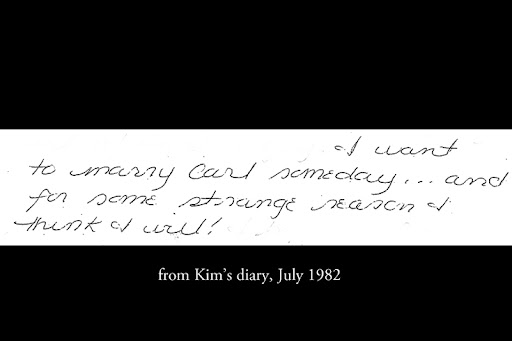 I want
to marry Carl someday... and
for some strange reason I
think I will!
from Kim's diary, July 1982